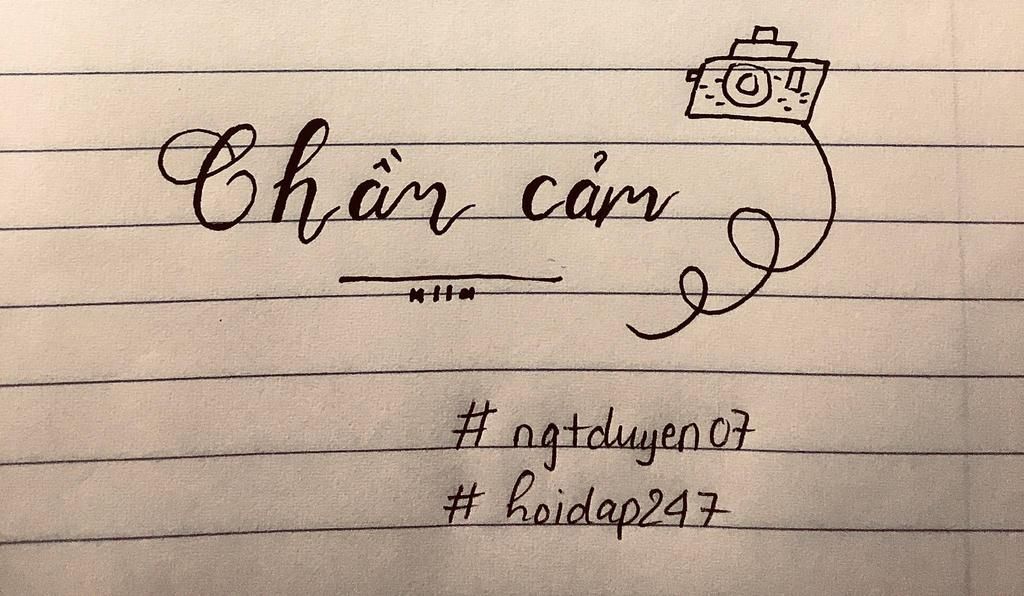 Chần cảm
# ngtduyen07
# hoidap247